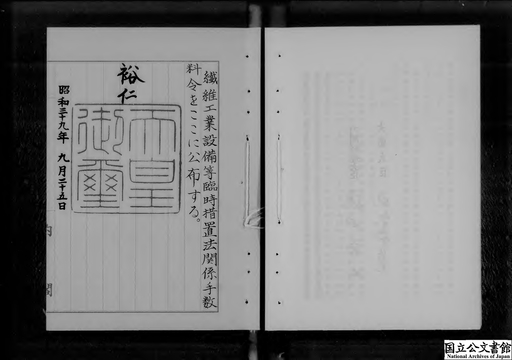 繊維工業設備等臨時措置法関係手数
料令をここに公布する。
裕仁
天皇
御璽
昭和三十九年 九月二十五日
内閣
国立公文書館
National Archives of Japan